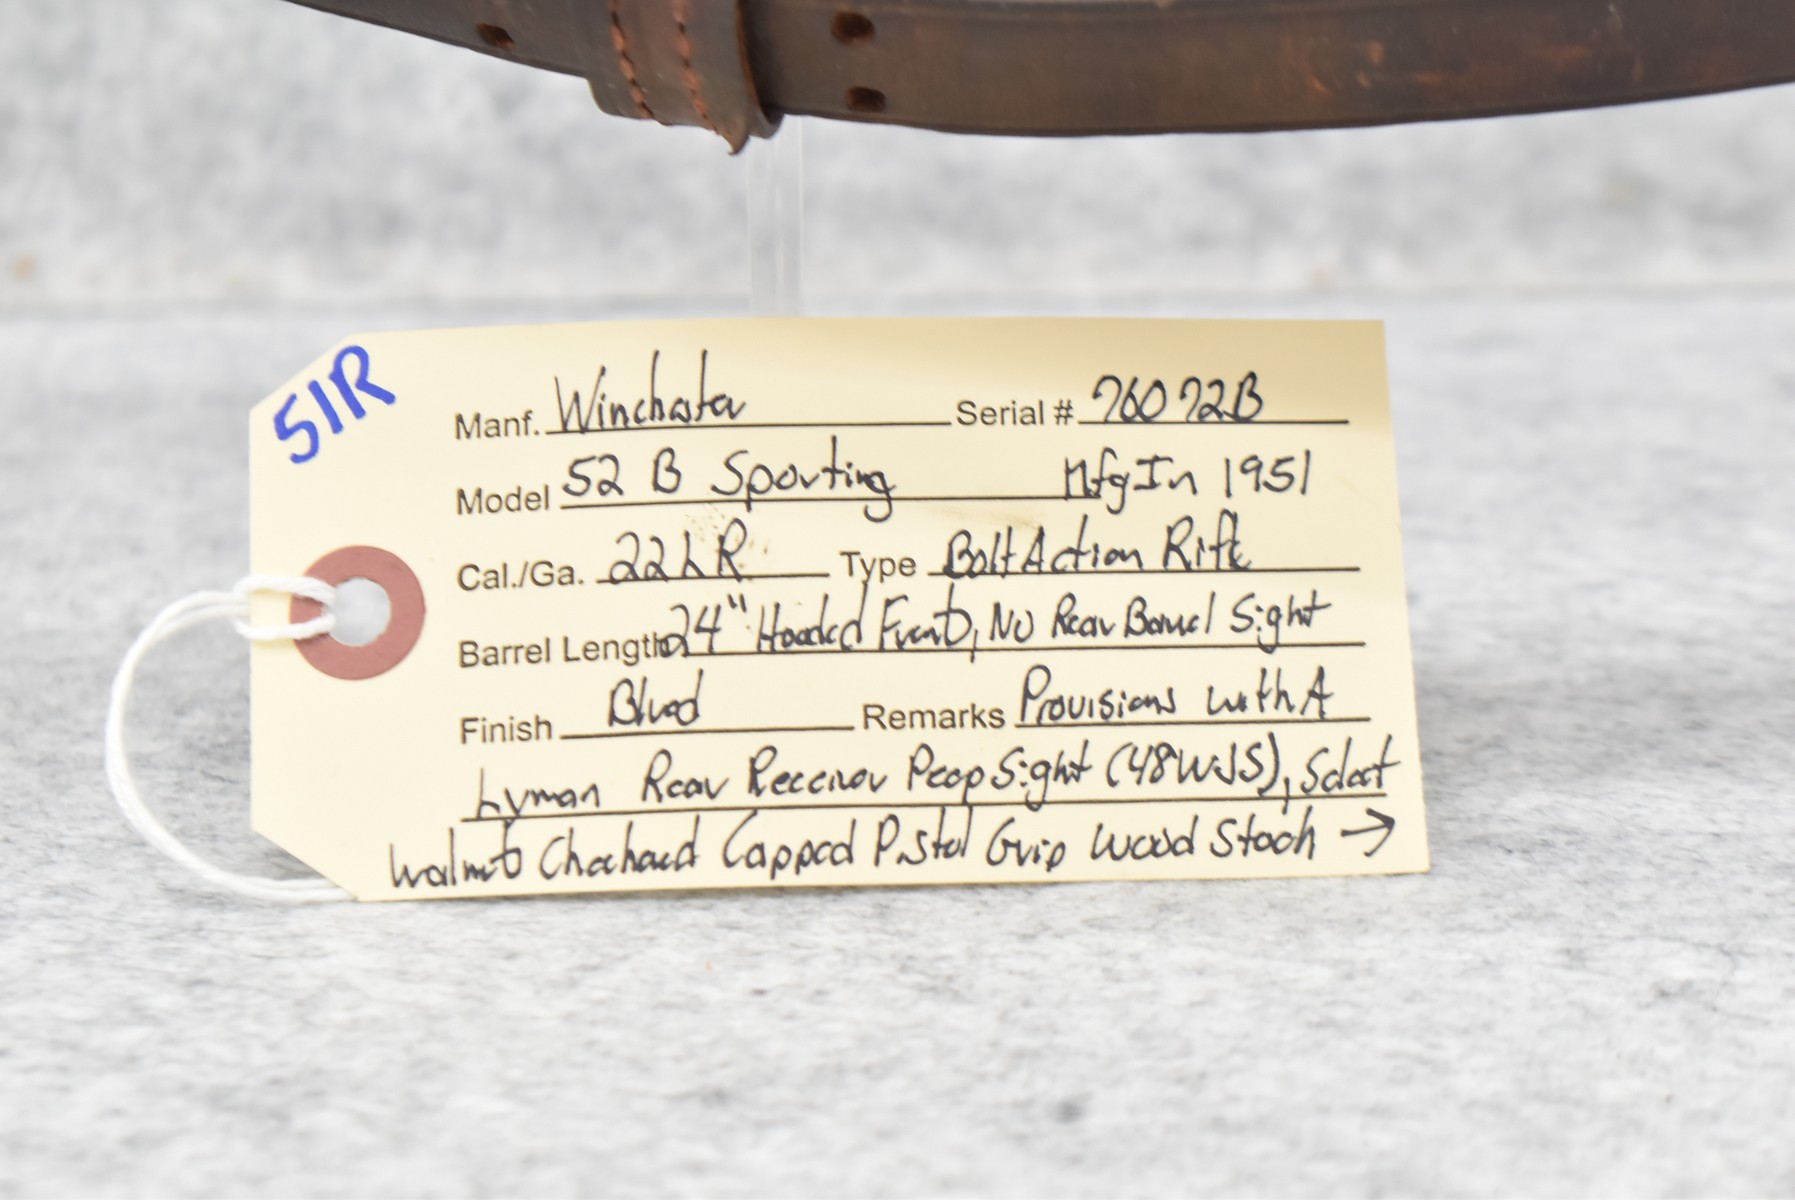 51R
Manf. Winchester Serial # 76072B
Model 52 B Sporting Mfg In 1951
Cal./Ga. 22LR Type Bolt Action Rifle
Barrel Length 24" Hooded Front, No Rear Barrel Sight
Finish Blued Remarks Provisions with A
Lyman Rear Receiver Peep Sight (48WJS), Select
Walnut Checkered Capped Pistol Grip Wood Stock →